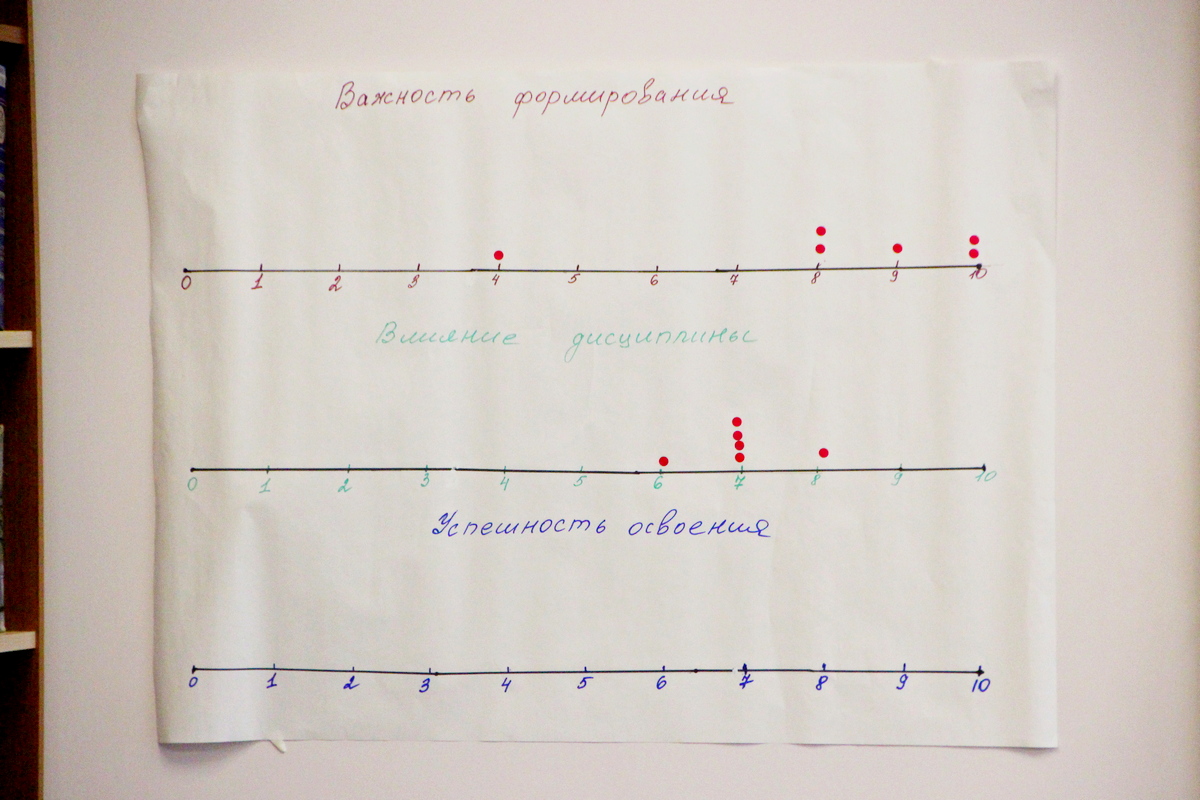 Важность формирования
0 1 2 3 4 5 6 7 8 9 10
Влияние дисциплины
0 1 2 3 4 5 6 7 8 9 10
Успешность освоения
0 1 2 3 4 5 6 7 8 9 10